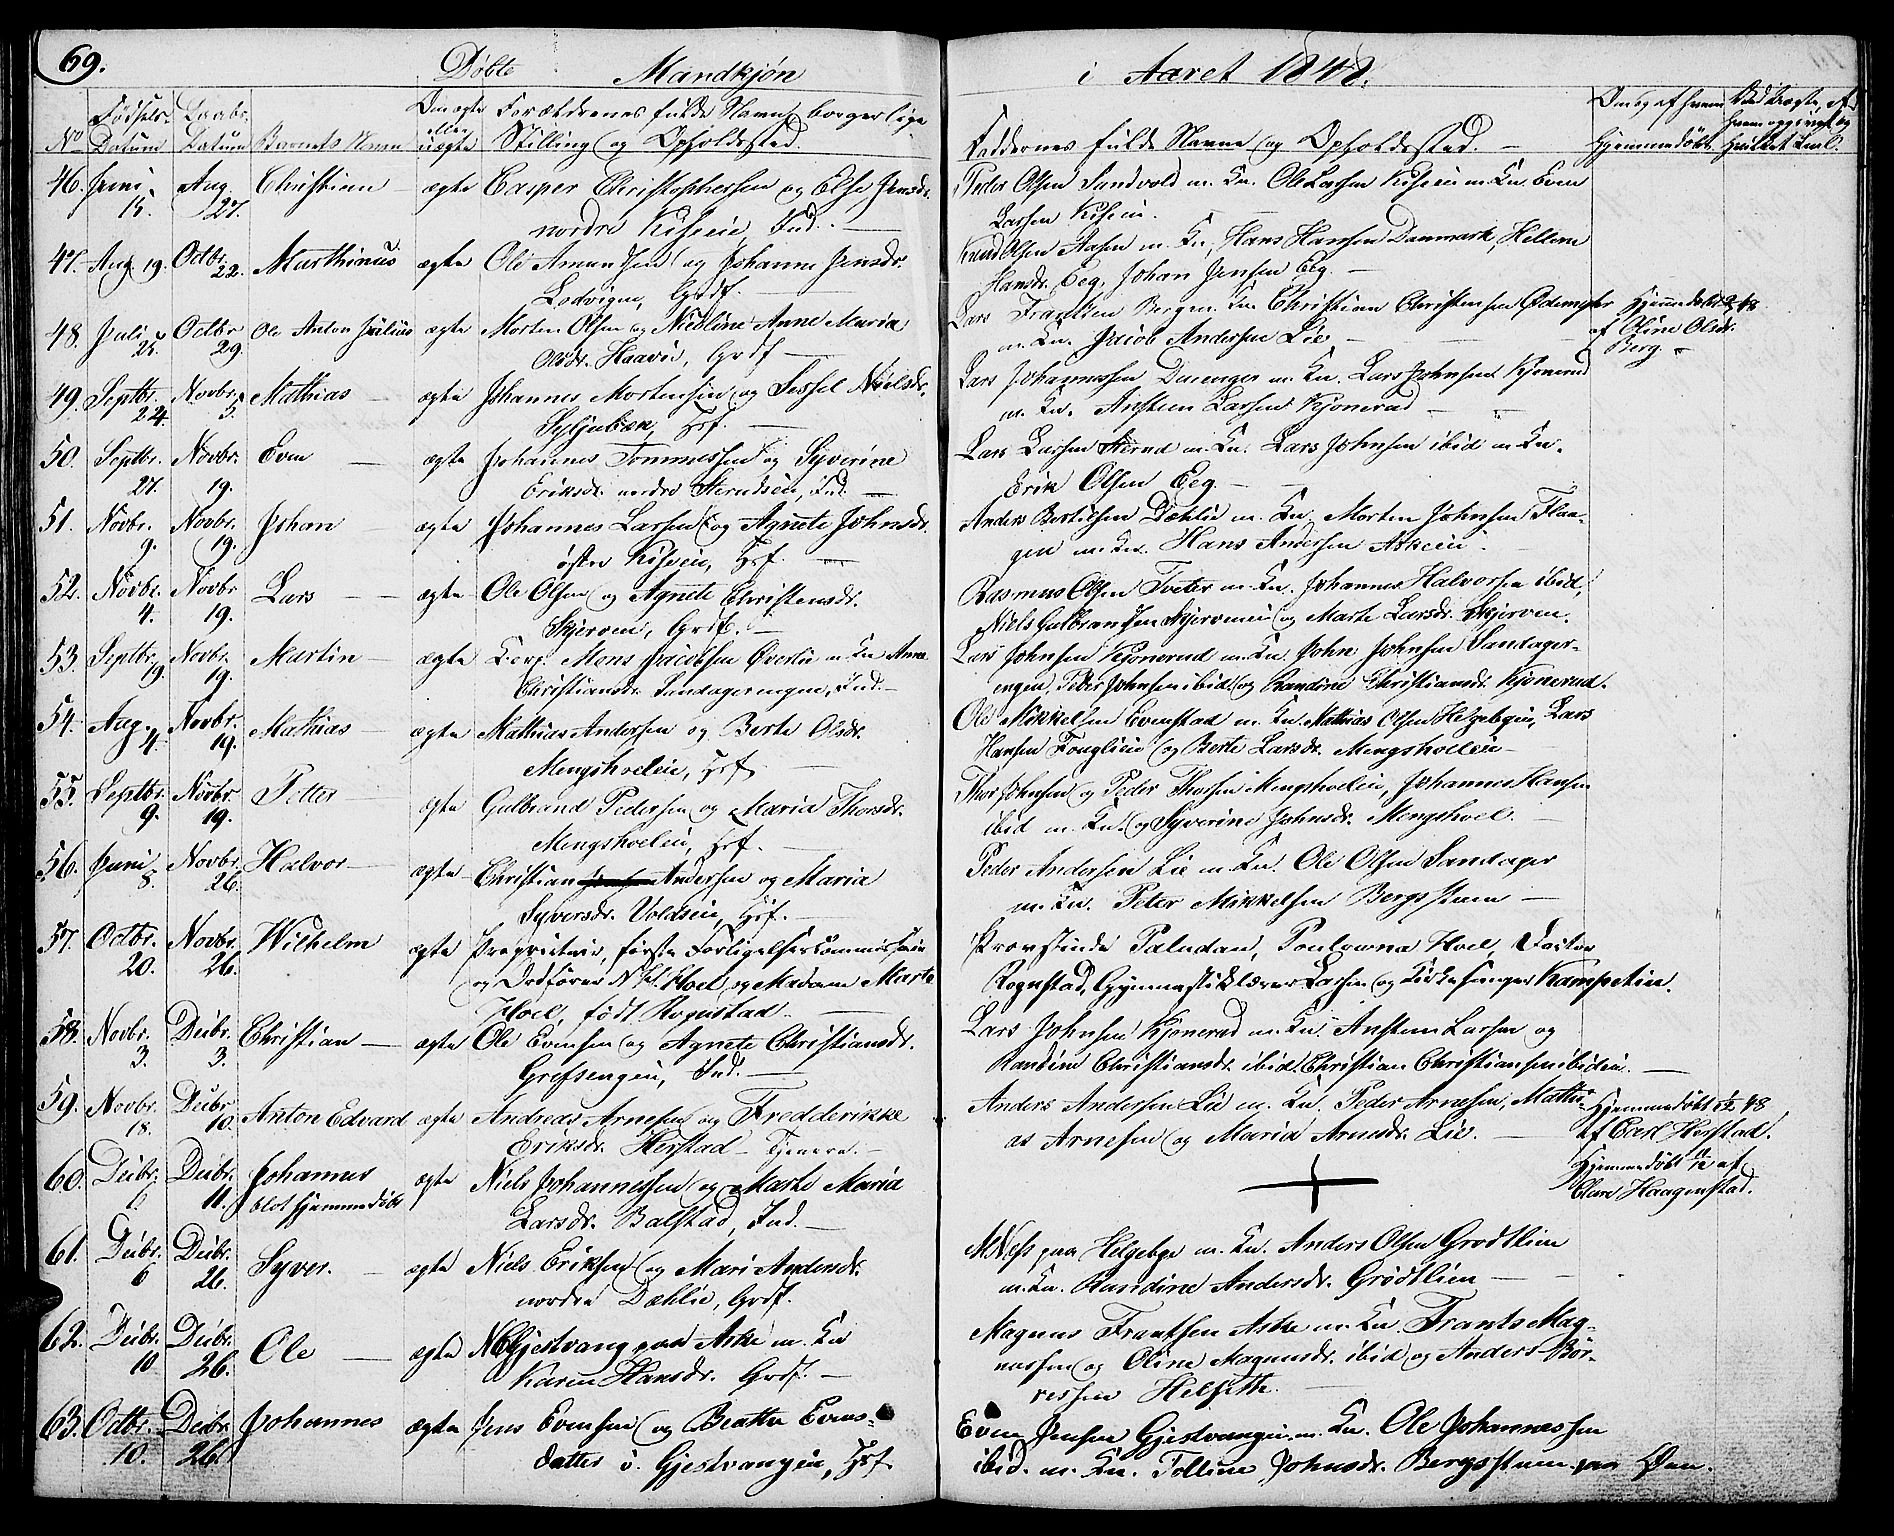 69.
Døbte Mandkjøn i Aaret 1848.
No Fødsels- Datum Daabs- Datum Barnets Navn Om ægte eller uægte Forældrenes fulde Navne, borgerlige Stilling og Opholdssted. Faddernes fulde Navne og Opholdssted. Hjemmedøbt
46. Juni 15. Aug. 27. Christian ægte Casper Christophersen og Else Jensdr.
nordre Kiseeie, Ind.
Peder Olsen Sandvold m. Kn. Ole Larsen Kiseeie m. Kn. Even
Larsen Kiseeie.
47. Aug. 19. Octbr. 22. Marthinus ægte Ole Amundsen og Johanne Jensdr.
Lodvigen, Grdf.
Knud Olsen Aasen m. Kn., Hans Hansen Danmark, Hellene
Hansdr. Eeg, Johan Jensen Eeg.
48. Juli 25. Octbr. 29. Ole Anton Julius ægte Morten Olsen og Nicoline Anne Maria
Olsdr. Haavie, Grdf
Lars Frantsen Berg m. Kn. Christian Christensen Ødemester
m. Kn. Jacob Andersen Lie
Hjemmedøbt 48
af Oline Olsdr.
Berg.
49. Septbr. 24. Novbr. 5. Mathias ægte Johannes Mortensen og Sissel Nielsdr.
Syljubæk, Hsf.
Lars Johannessen Dærenger m. Kn. Lars Johnsen Kjonerud
m. Kn. Ansteen Larsen Kjonerud
50. Septbr. 27. Novbr. 19. Even ægte Johannes Tommessen og Syverine
Eriksdr. nedre Sterudeie, Ind.
Lars Larsen Sterud m. Kn. Lars Johnsen ibid m. Kn.
Erik Olsen Eeg
51. Novbr. 9. Novbr. 19. Johan ægte Johannes Larsen og Agnete Johnsdr.
østre Kiseeie, Hsf.
Anders Bertilsen Dæhlie m. Kn. Morten Johnsen Flaa-
gen m. Kn. Hans Andersen Askeeie
52. Novbr. 4. Novbr. 19. Lars ægte Ole Olsen og Agnete Christensdr.
Skjerven, Grdf.
Rasmus Olsen Tveter m. Kn. Johannes Halvorsen ibid,
Niels Gulbrandsen Skjerveneie og Marte Larsdr. Skjerven.
53. Septbr. 19. Novbr. 19. Martin ægte Mons Jacobsen Øverlie m. Kn Anne
Christiansdr. Sandagerengen, Ind.
Lars Johnsen Kjonerud m. Kn. John Johnsen Sandager-
engen, Peder Johnsen ibid og Randine Christiansdr. Kjonerud.
54. Aug. 4. Novbr. 19. Mathias ægte Mathias Andersen og Berte Olsdr.
Mengshoeleie, Hsf.
Ole Mikkelsen Evenstad m. Kn. Mathias Olsen Helgebyeie, Lars
Hansen Fouglieie og Berte Larsdr. Mengshoeleie
55. Septbr. 9. Novbr. 19. Petter ægte Gulbrand Pedersen og Maria Thorsdr.
Mengshoeleie, Hsf.
Thor Johnsen og Peder Thorsen Mengshoeleie, Johannes Hansen
ibid m. Kn. og Syverine Johnsdr. Mengshoel.
56. Juni 8. Novbr. 26. Halvor ægte Christian Andersen og Maria
Syversdr. Voldseie, Hsf.
Peder Andersen Lie m. Kn. Ole Olsen Sandager
m. Kn. Peter Mikkelsen Bergssteen
57. Octbr. 20. Novbr. 26. Wilhelm ægte Proprietair, første Forligelsescommissair
og Ordfører N. Hoel og Madame Marte
Hoel, født Rognstad.
Provstinde Paludan, Poulowna Hoel, Doctor
Rognstad, Gymnastiklærer Larsen og Kirkesanger Kampetin.
58. Novbr. 3. Decbr. 3. Christian ægte Ole Evensen og Agnete Christiansdr.
Grefsengeie, Ind.
Lars Johnsen Kjonerud m. Kn. Ansteen Larsen og
Randine Christiansdr. ibid, Christian Christiansen ibideie.
59. Novbr. 18. Decbr. 10. Anton Edvard ægte Andreas Arnesen og Fredderikke
Eriksdr. Herstad Tjenere.
Anders Andersen Lie m. Kn. Peder Arnesen, Mathi-
as Arnesen og Maria Arnesdr. Lie.
Hjemmedøbt 48
af Carl Herstad.
60. Decbr. 6. Decbr. 11. Johannes
blot hjemmedøbt ægte Niels Johannessen og Marte Maria
Larsdr. Balstad, Ind.
Hjemmedøbt 11/12 af
Clare Haagenstad.
61. Decbr. 6 Decbr. 26. Syver. ægte Niels Eriksen og Mari Andersdr.
nordre Dæhlie, Grdf.
M Ness paa Helgebye m. Kn. Anders Olsen Grødtlien
m. Kn. Randine Andersdr. Grødtlien
62. Decbr. 10 Decbr. 26. Ole ægte N Gjestvang paa Aske m. Kn
Karen Hansdr. Grdf.
Magnus Frantsen Aske m. Kn. Frants Mag-
nussen og Oline Magnusdr. ibid og Anders Bør-
resen Helseth.
63. Octbr. 10. Decbr. 26. Johannes ægte Jens Evensen og Beatte Evens-
datter ø. Gjestvangeie, Hsf.
Even Jensen Gjestvangeie m. Kn. Ole Johannessen
ibid. m. Kn. Tolline Johnsdr. Bergssteen paa Øen.